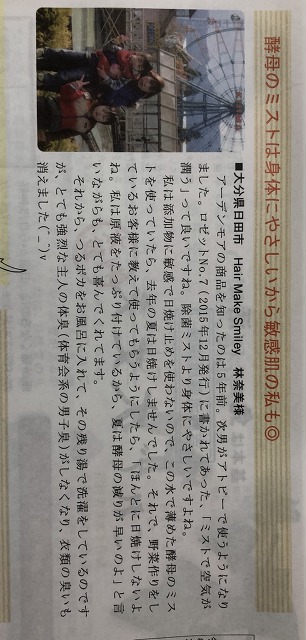 酵母のミストは身体にやさしいから敏感肌の私も◎
■大分県日田市　Hair Make Smiley　林奈美様
アーデンモアの商品を知ったのは７年前。次男がアトピーで使うようになり
ました。ロゼットNo.7（2015年12月発行）に書かれてあった、「ミストで空気が
潤う」って良いですね。除菌ミストより身体にやさしいですよね。
私は添加物に敏感で日焼け止めを使わないので、この水で薄めた酵母のミス
トを使っていたら、去年の夏は日焼けしませんでした。それで、野菜作りをし
ているお客様に教えて使ってもらうようにしたら、「ほんとに日焼けしないよ
ね。私は原液をたっぷり付けているから、夏は酵母の減りが早いのよ」と言
いながらも、とても喜んでくれてます。
それから、つるポカをお風呂に入れて、その残り湯で洗濯をしているのです
が、とても強烈な主人の体臭（体育会系の男子臭）がしなくなり、衣類の臭いも
消えました(^_^)v